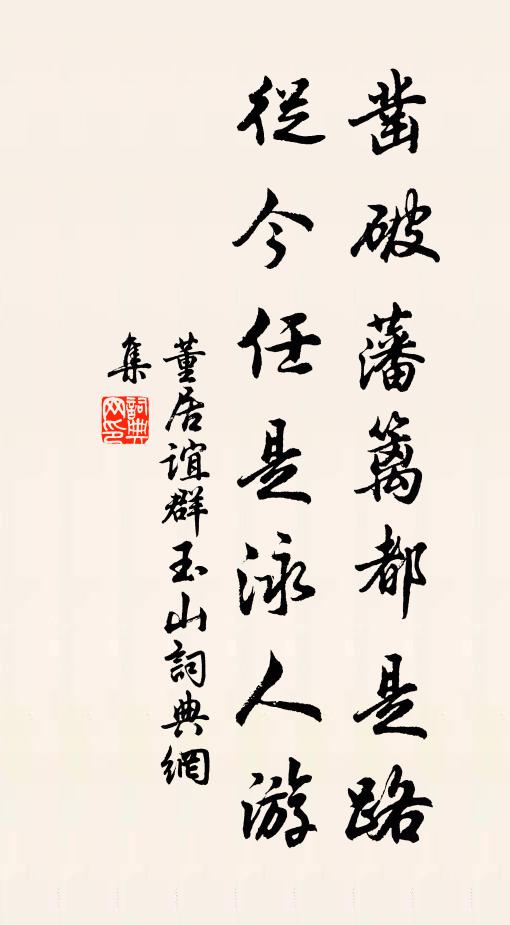 鑿破藩籬都是路
從今任是泳人游
董居誼群玉山詞典網
集
詞典網印